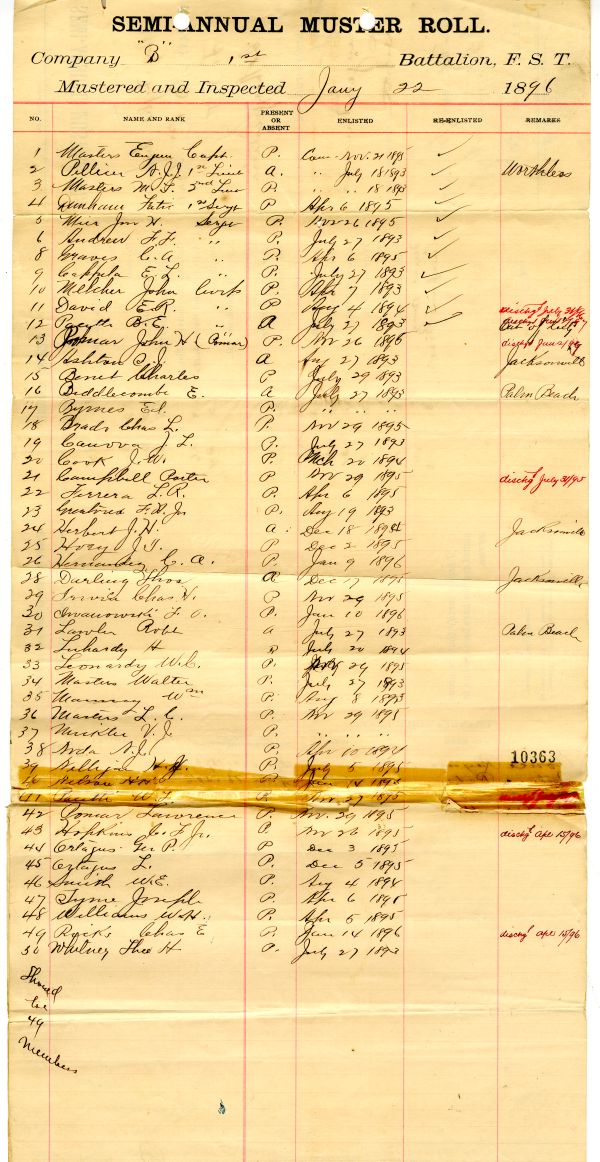 SEMI-ANNUAL MUSTER ROLL.
Company "B" 1st Battalion, F. S. T.
Mustered and Inspected Jany 22 1896
NO. NAME AND RANK PRESENT OR ABSENT ENLISTED RE-ENLISTED REMARKS
1 Masters Eugene Capt. P. Com Nov. 21 1895 ✓
2 Pellicer A.J.J. 1st Lieut A. " July 18 1893 ✓ Worthless
3 Masters M. F. 2nd Lieut P. " " 18 1893 ✓
4 Dunham 1st Sergt P Apr 6 1895 ✓
5 Mier Jno H. Sergt P. Nov 26 1895 ✓
6 Andrew F. F. " P. July 27 1893 ✓
8 Graves C. A " P. Apr 6 1895 ✓
9 Cappula E. L. " P. July 27 1893 ✓
10 Melcher John Corp P. Apr 7 1893 ✓
11 David E.R. " P. Aug 4 1894 ✓ dischgd July 31/96
12 B. E. " A July 27 1893 ✓
13 Pomar John H (Pomar) P. Nov 26 1895 dischgd June 1/96
14 Ashton C. J. A Aug 27 1893 Jacksonville
15 Benet Charles P July 29 1893
16 Biddlecombe E. A July 27 1893 Palm Beach
17 Byrnes Ed. P. " " "
18 Brado Chas L. P. Nov 29 1895
19 Canova J L. P. July 27 1893
20 Cook J. W. P. Mch 20 1894
21 Campbell Porter P Nov 29 1895 dischgd July 31/95
22 Ferrera L. R. P. Apr 6 1895
23 F. H. Jr P. Aug 19 1893
24 Herbert J. H. A. Dec 18 1894 Jacksonville
25 Hoey J. T. P Dec 2 1895
26 Hernandez C. A. P. Jan 9 1896
28 Darling Thos A Dec 17 1895 Jacksonville
29 Irwin Chas H. P Nov 29 1895
30 Iwanowski F. O. P. Jan 10 1896
31 Lawler Robt A July 27 1893 Palm Beach
32 Linhardy H P July 20 1894
33 Leonardy W.C. P. Nov 29 1895
34 Masters Walter P. July 27 1893
35 Manucy Wm P. Aug 8 1893
36 Masters L. C. P. Nov 29 1895
37 Mickler V. J. P. " " "
38 Noda A. J. P. Apr 10 1894
10363
39 H. H. P. July 5 1895
40 Nelson H.H. P. Jan 14 1895
41 W. L. P. Nov. 27 1895
42 Pomar Lawrence P. Nov. 29 1895
43 Hopkins C. F. Jr. P Nov 26 1895 dischgd Apl 15/96
44 Ortagus Geo P. P Dec 3 1895
45 Ortagus L. P. Dec 5 1895
46 Smith W.E. P. Aug 4 1894
47 Tyme Joseph P. Apr 6 1895
48 Williams W.H. P. Apr 5 1895
49 Ryeks Chas E P. Jan 14 1896 dischgd Apl 15/96
50 Whitney Theo H P. July 27 1893
Should
be
49
Members